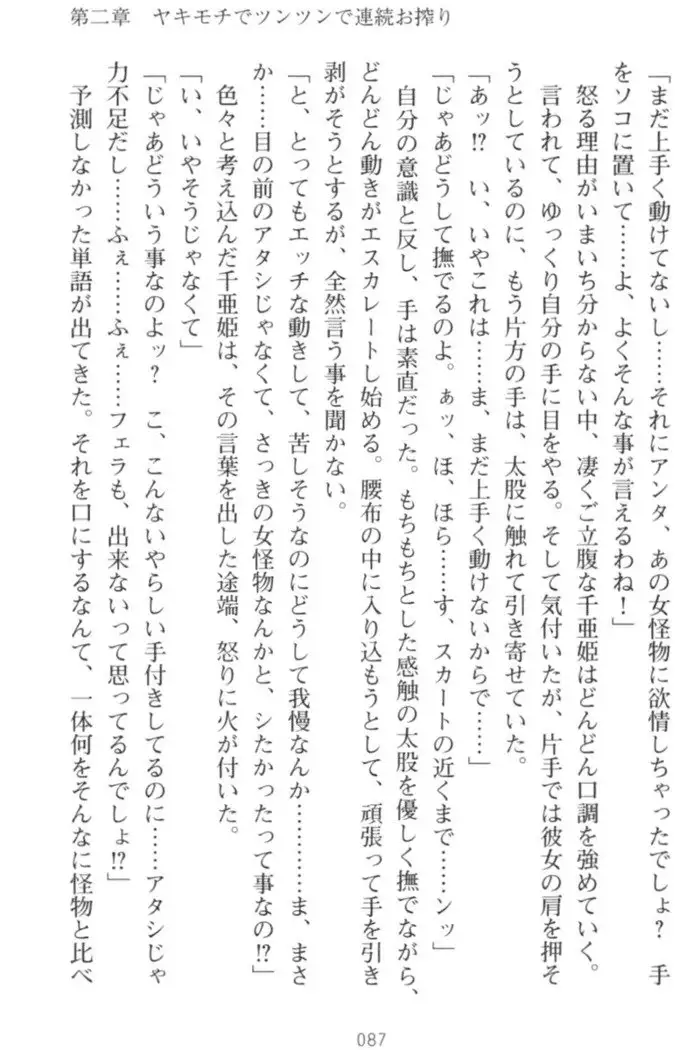 第二章　ヤキモチでツンツンで連続お搾り
「まだ上手く動けてないし……それにアンタ、あの女怪物に欲情しちゃったでしょ？　手
をソコに置いて……よ、よくそんな事が言えるわね！」
　怒る理由がいまいち分からない中、凄くご立腹な千亜姫はどんどん口調を強めていく。
　言われて、ゆっくり自分の手に目をやる。そして気付いたが、片手では彼女の肩を押そ
うとしているのに、もう片方の手は、太股に触れて引き寄せていた。
「あッ!?　い、いやこれは……ま、まだ上手く動けないからで……」
「じゃあどうして撫でるのよ。ぁッ、ほ、ほら……す、スカートの近くまで……ンッ」
　自分の意識と反し、手は素直だった。もちもちとした感触の太股を優しく撫でながら、
どんどん動きがエスカレートし始める。腰布の中に入り込もうとして、頑張って手を引き
剥がそうとするが、全然言う事を聞かない。
「と、とってもエッチな動きして、苦しそうなのにどうして我慢なんか…………ま、まさ
か……目の前のアタシじゃなくて、さっきの女怪物なんかと、シたかったって事なの!?」
　色々と考え込んだ千亜姫は、その言葉を出した途端、怒りに火が付いた。
「い、いやそうじゃなくて」
「じゃあどういう事なのよッ？　こ、こんないやらしい手付きしてるのに……アタシじゃ
力不足だし……ふぇ……ふぇ……フェラも、出来ないって思ってるんでしょ!?」
　予測しなかった単語が出てきた。それを口にするなんて、一体何をそんなに怪物と比べ
087